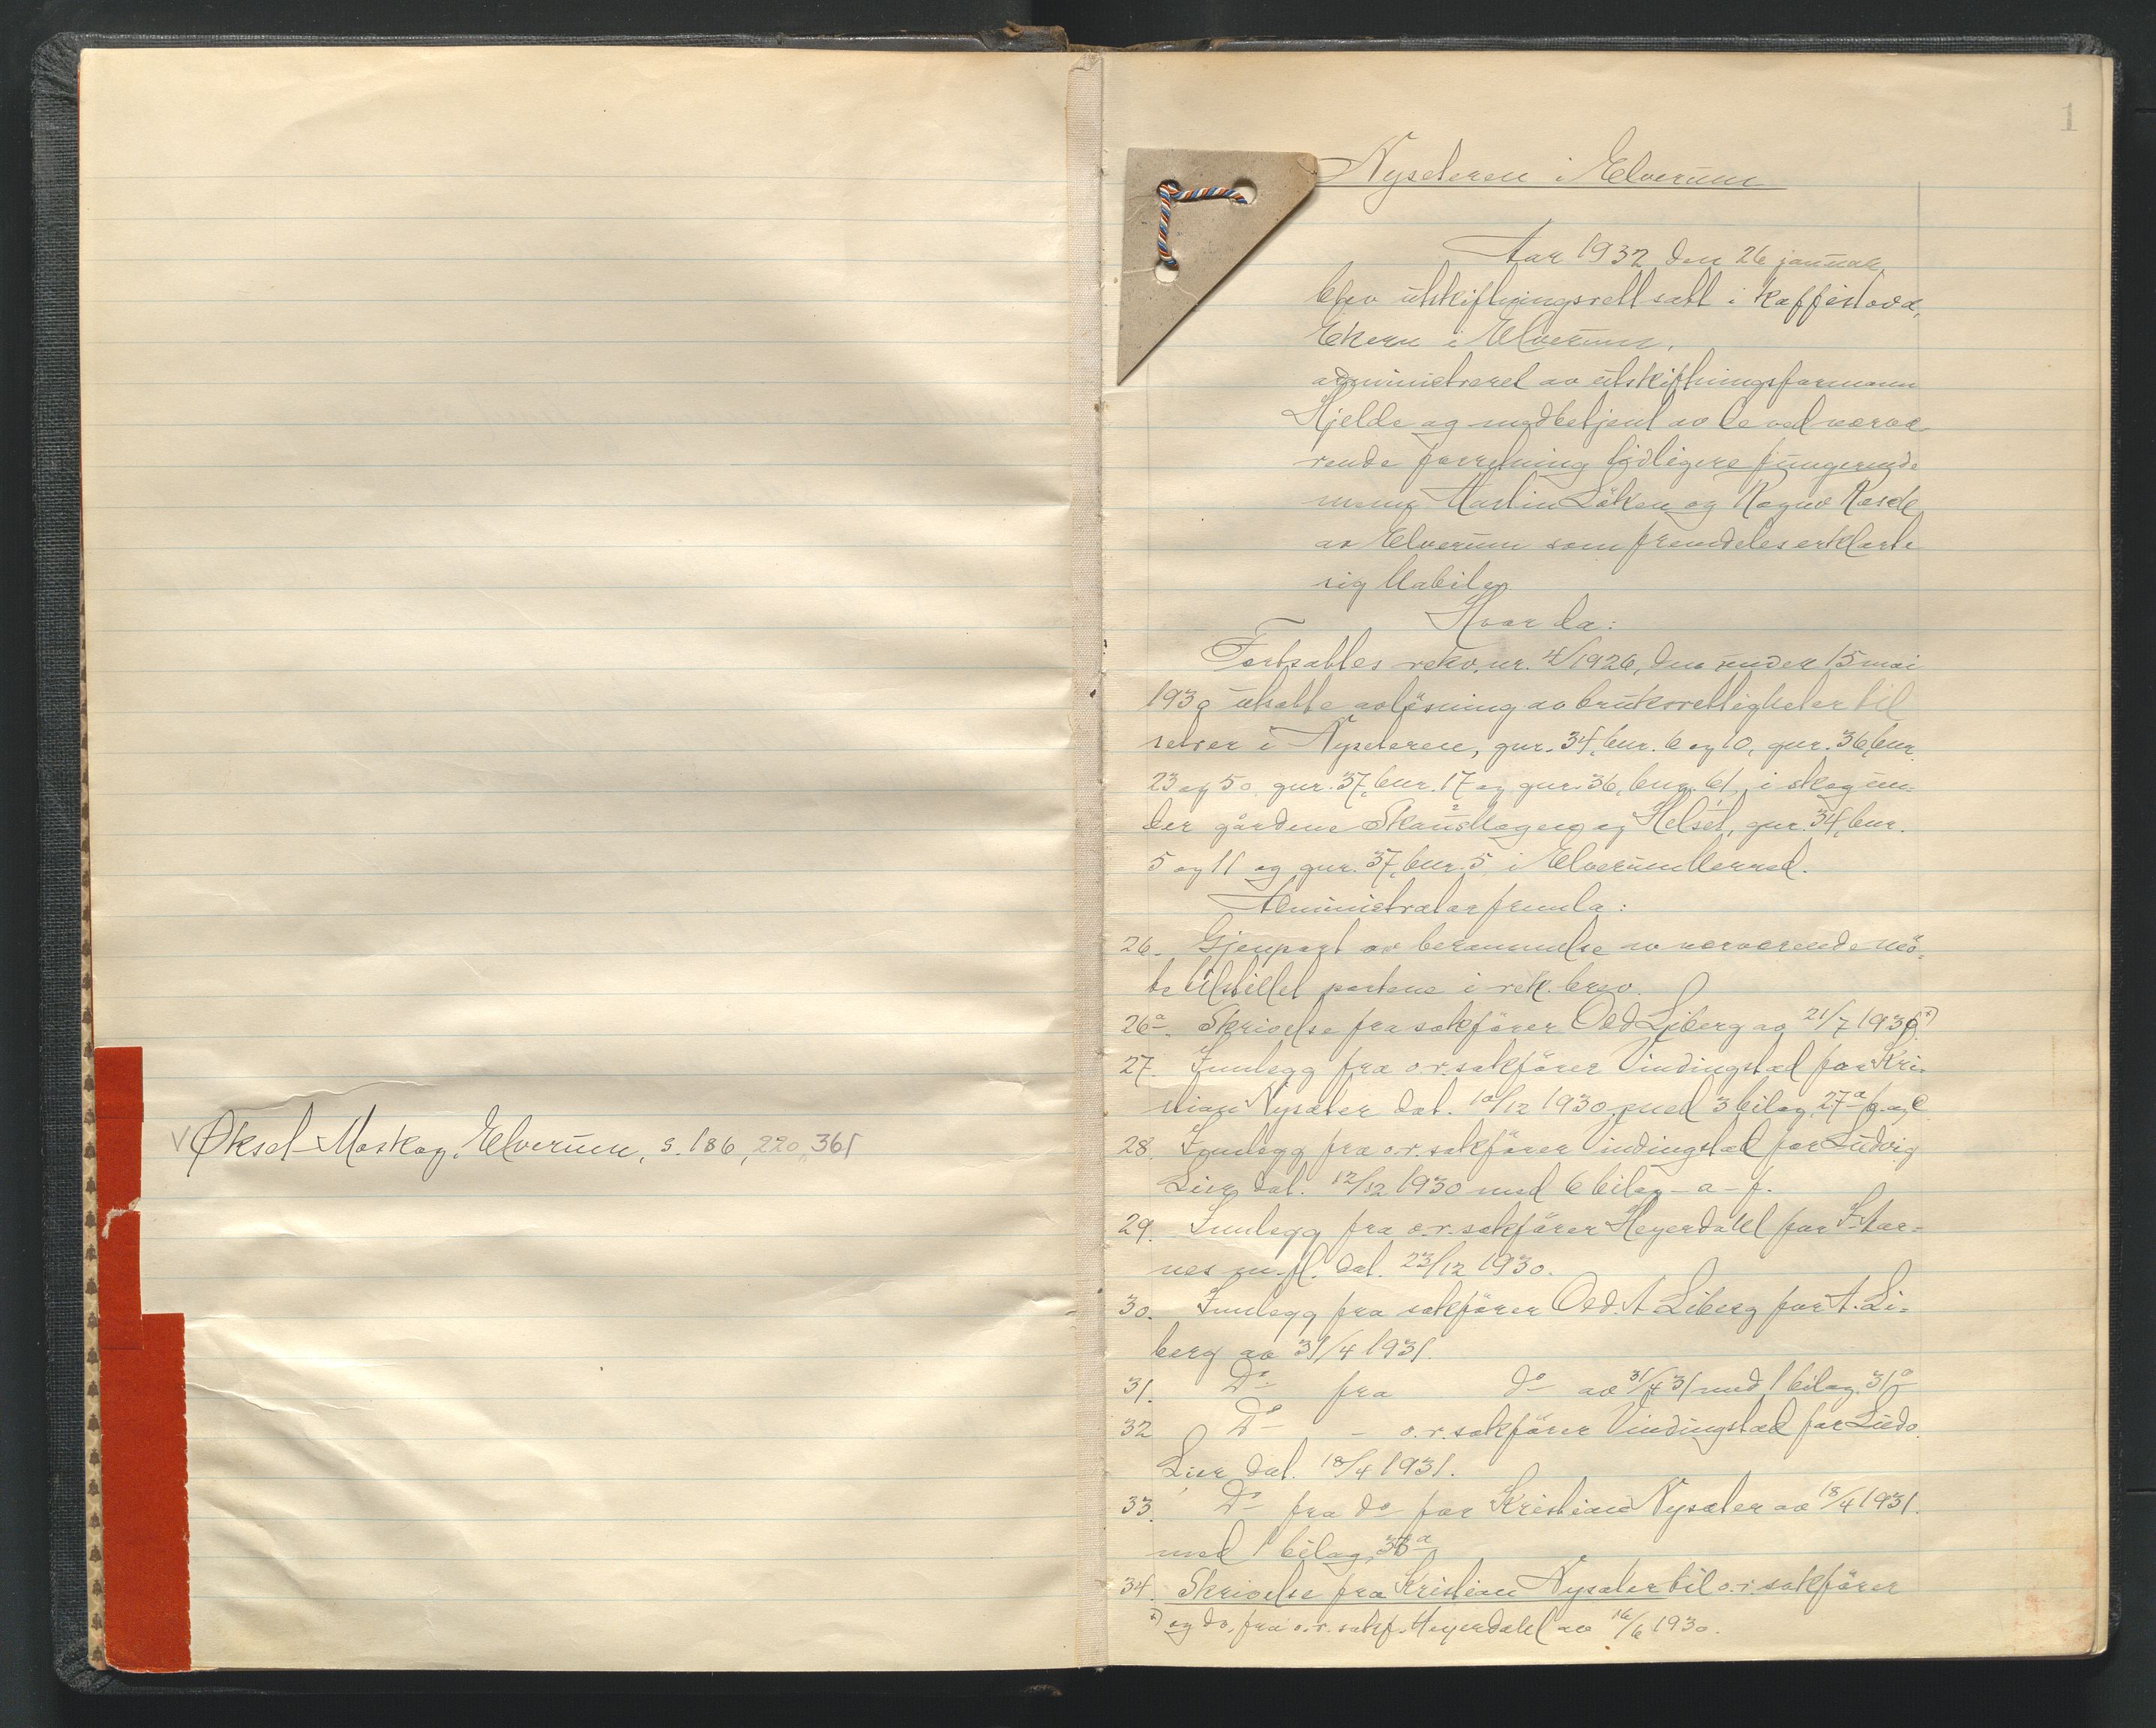 √ Øksel-Moskog, Elverum, s. 186, 220, 361
1
Nyseteren i Elverum
Aar 1932 den 26 januar
blev utskiftningsrett satt i kaffistova,
Ekern i Elverum,
administreret av utskiftningsformann
Hjelde og medbetjent av de ved nærvæ-
rende forretning tidligere fungerende
menn Martin Löken og Ragnv. Rasch
av Elverum som fremdeles erklærte
sig habile.
Hvor da:
Fortsattes rekv. nr. 4/1926, den under 15 mai
1930 utsatte avlösning av bruksrettigheter til
setrer i Nyseteren, gnr. 34, bnr. 6 og 10, gnr. 36, bnr.
23 og 50, gnr. 37, bnr. 17 og gnr. 36, bnr. 61, i skog un-
der gårdene og Helset, gnr. 34, bnr.
5 og 11 og gnr. 37, bnr. 5 i Elverum herred.
Administrator fremla:
26. Gjenpart av berammelse av nærværende mö-
te tilstillet partene i rek. brev.
26a. Skrivelse fra sakförer Odd Liberg av 21/7 1930 x)
27. Innlegg fra o.r.sakförer Vindingstad for Kri-
stian Nysæter dat. 12/12 1930 med 3 bilag, 27a b og c
28. Innlegg fra o.r.sakförer Vindingstad for Ludvig
Lier dat. 12/12 1930 med 6 bilag - a - f.
29. Innlegg fra o.r.sakförer Heyerdahl for Aar-
nes m.fl. dat. 23/12 1930.
30. Innlegg fra sakförer Odd. A Liberg for A. Li-
berg av 31/4 1931.
31. Do fra do av 31/4 31 med 1 bilag. 31a
32 Do - o.r.sakförer Vindingstad for Ludv.
Lier dat. 18/4 1931.
33. Do fra do for Kristian Nysæter av 18/4 1931.
med 1 bilag, 33a
34. Skrivelse fra Kristian Nysæter til o.r.sakförer
x) og do. fra o.r.sakf. Heyerdahl av 16/6 1930.